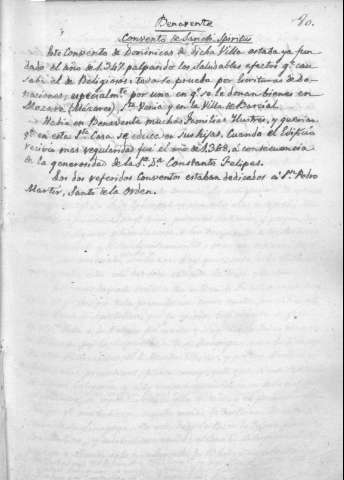 Benavente
90.
Convento de Sancti Spiritus
Este Convento de Domínicas de dicha Villa estaba ya fun-
dado el año de 1.347, palpando los saludables efectos q.e cau-
sabi el de Religiosos: tuvo la prueba por Escrituras de do-
naciones, especialm.te por una en q.e se le donan bienes en
Mozabe (Mózares), S.ta María y en la Villa de Barcial.
Había en Benavente muchas familias Ilustres, y querían
q.e en esta S.ta Casa se educasen sus hijas. Cuando el Edificio
recivió mas regularidad fué el año de 1.388, á consecuencia
de la generosidad de la S.ra D.a Constanza Felipes.
Los dos referidos Conventos estaban dedicados á S.n Pedro
Martir, Santo de la Orden.